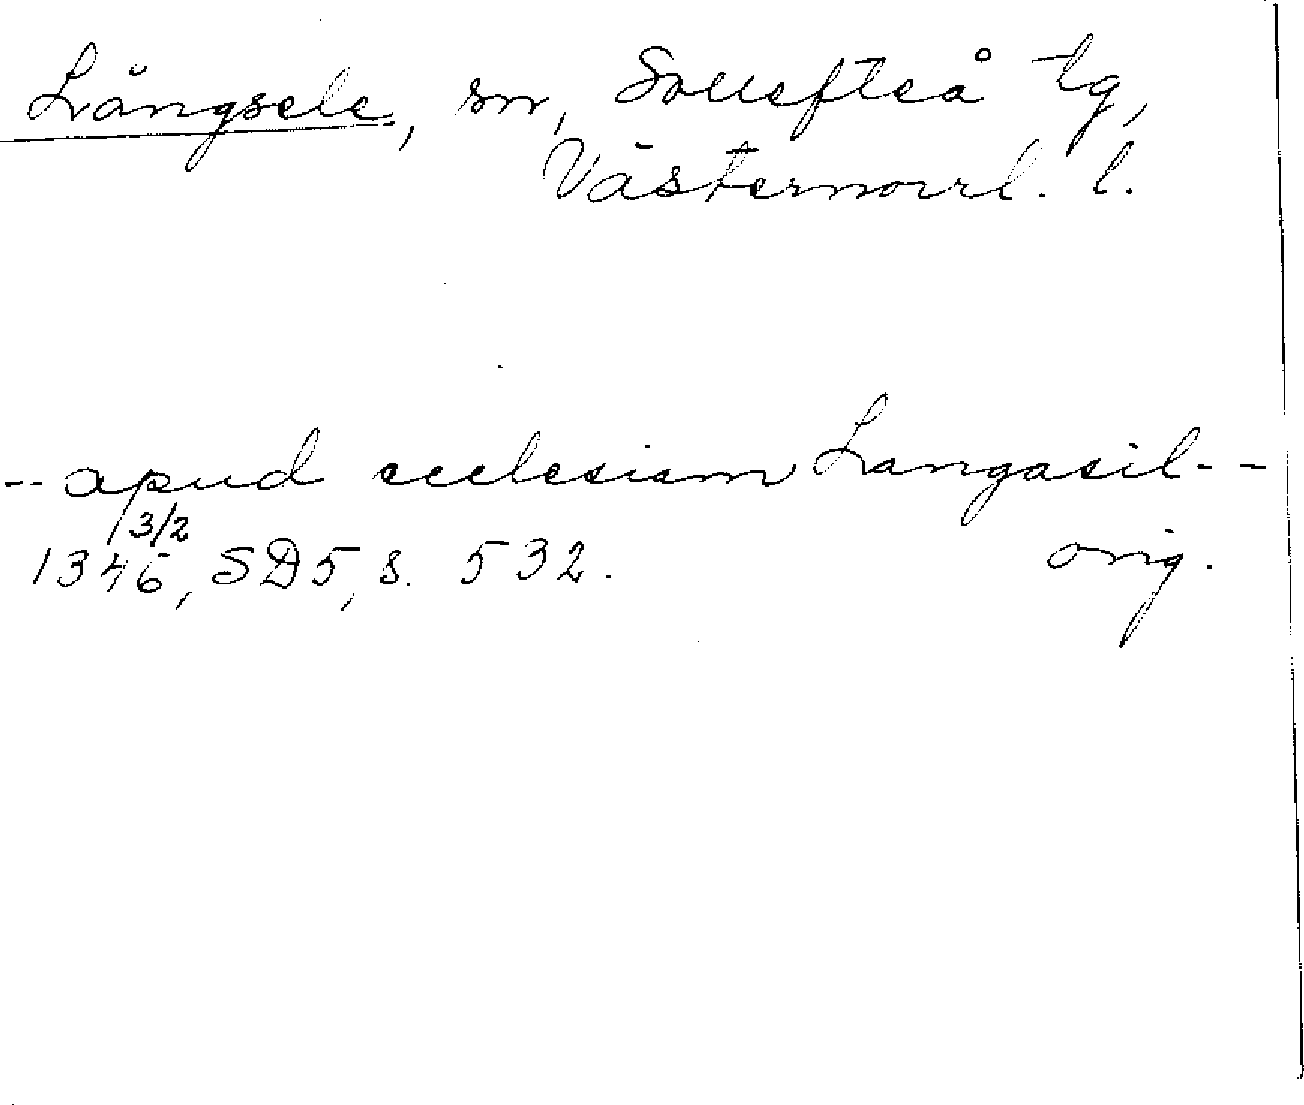 Långsele, sn, Sollefteå tg,
Västernorrl. l.
-- apud ecclesiam Langasil --
13/2
1346, SD5, s. 532. orig.